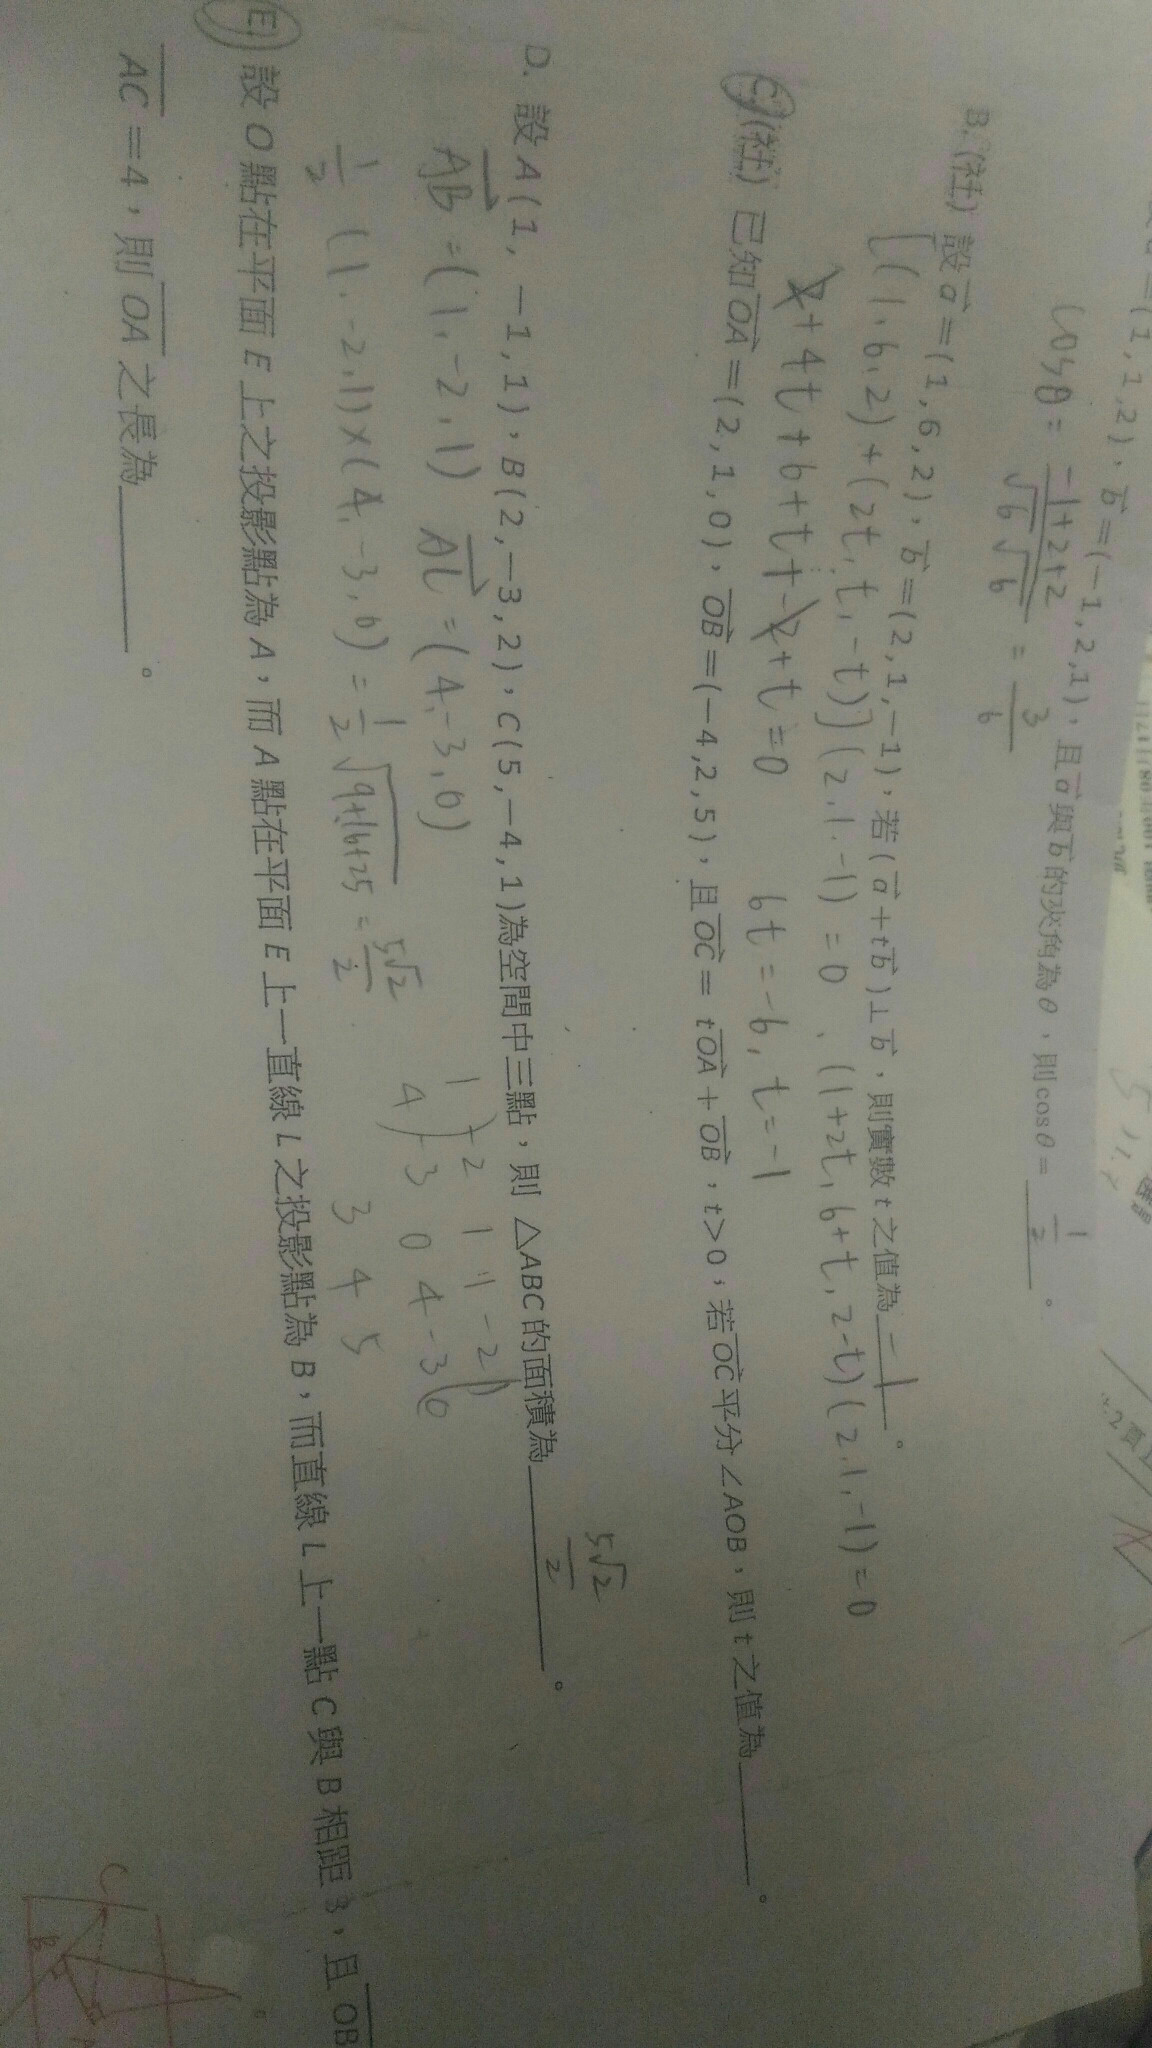 =(1,1,2),b⃗=(-1,2,1),且a⃗與b⃗的夾角為θ,則cosθ=1/2。
cosθ=(-1+2+2)/(√6√6)=3/6
B.(社)設a⃗=(1,6,2),b⃗=(2,1,-1),若(a⃗+tb⃗)⊥b⃗,則實數t之值為-1。
[(1,6,2)+(2t,t,-t)](2,1,-1)=0、(1+2t,6+t,2-t)(2,1,-1)=0
2+4t+6+t+-2+t=0 6t=-6,t=-1
C.(社) 已知OA⃗=(2,1,0),OB⃗=(-4,2,5),且OC⃗=tOA⃗+OB⃗,t>0,若OC⃗平分∠AOB,則t之值為______。
D. 設A(1,-1,1),B(2,-3,2),C(5,-4,1)為空間中三點,則△ABC的面積為5√2/2。
AB⃗=(1,-2,1) AC⃗=(4,-3,0)
1 -2 1 1 -2 1
4 -3 0 4 -3 0
1/2(1,-2,1)×(4,-3,0)=1/2√9+16+25=5√2/2 3 4 5
E. 設O點在平面E上之投影點為A,而A點在平面E上一直線L之投影點為B,而直線L上一點C與B相距3,且OB
AC=4,則OA之長為______。
C
B
A